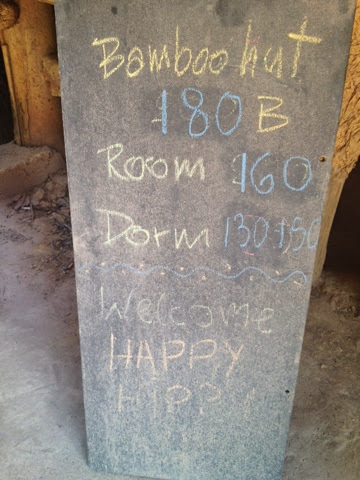 Bamboo hut
180 B
Room 160
Dorm 130-150
Welcome
HAPPY
HIPPY